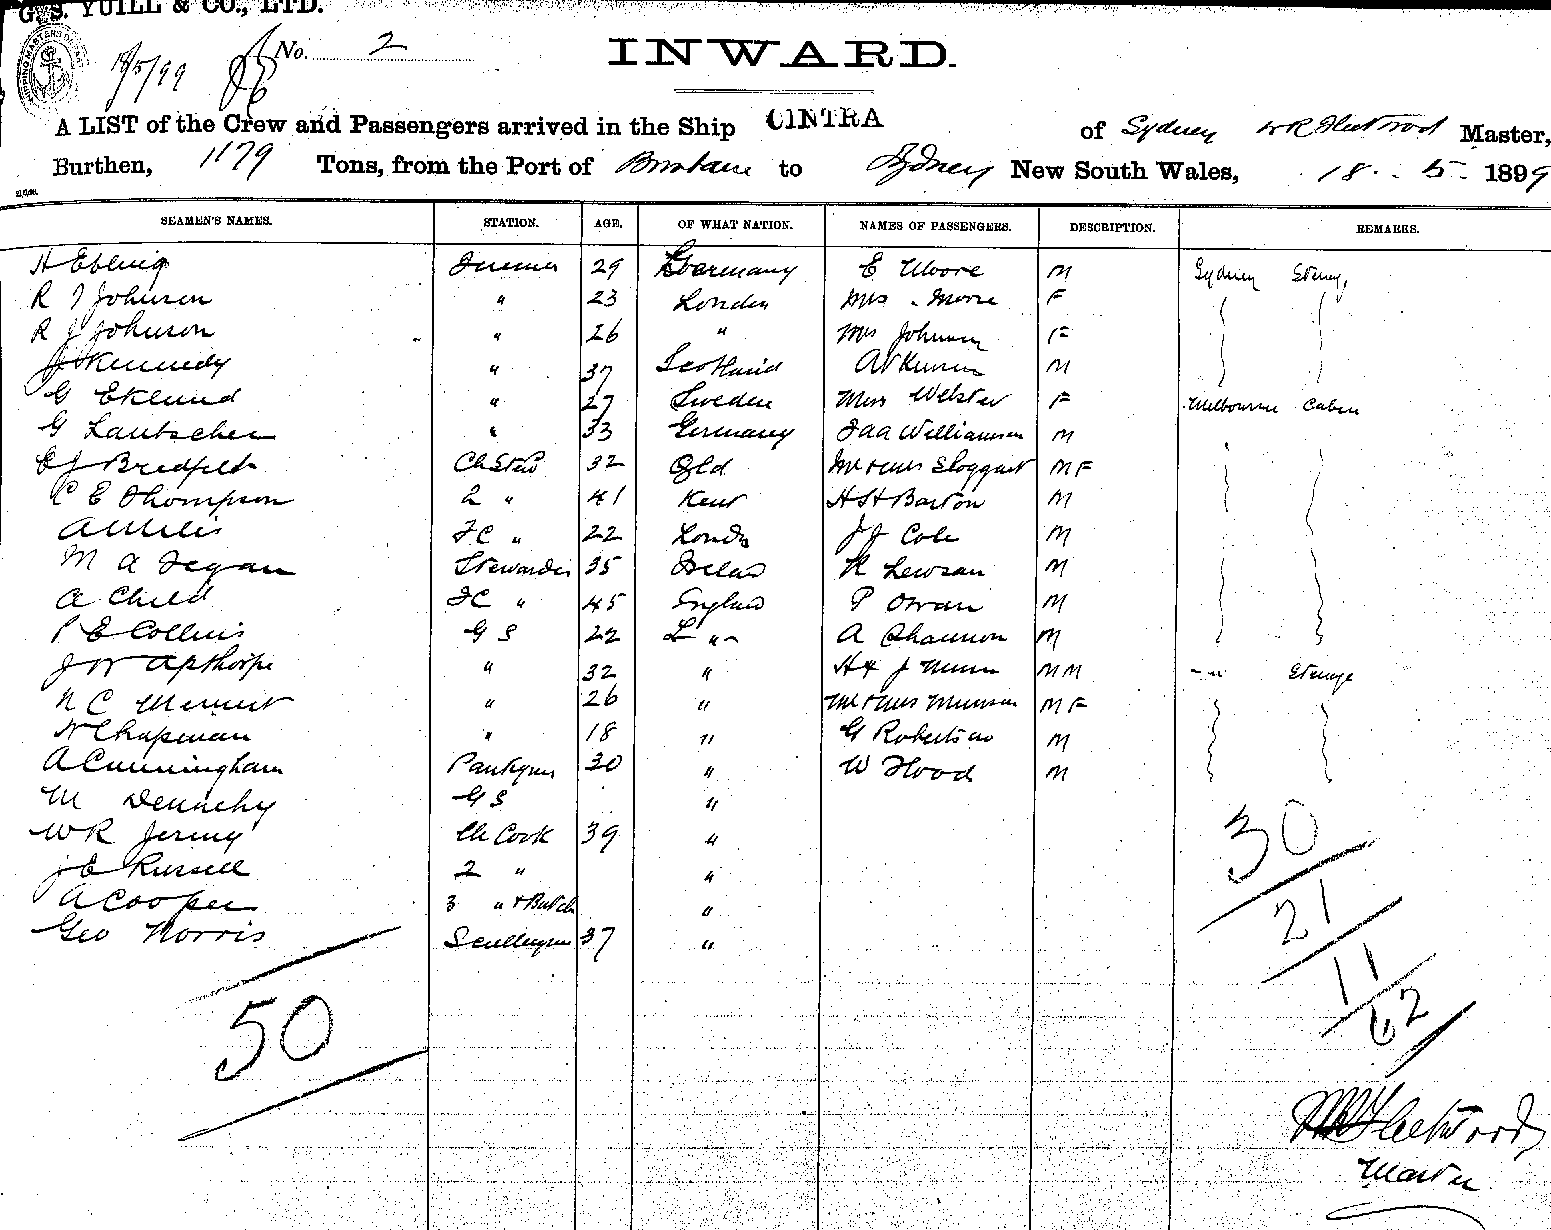 G. S. YUILL & CO., LTD.
18/5/99 No. 2
INWARD.
A LIST of the Crew and Passengers arrived in the Ship CINTRA of Sydney W R Fleetwood Master,
Burthen, 1179 Tons, from the Port of Brisbane to Sydney New South Wales, 18 - 5 - 1899
SEAMEN'S NAMES. STATION. AGE. OF WHAT NATION. NAMES OF PASSENGERS. DESCRIPTION. REMARKS.
H Ebling 29 Germany E Moore M Sydney
R J Johnson " 23 London Mrs Moore F
R J Johnson " 26 " Mrs Johnson F
J Kennedy " 37 Scotland M
G Eklund " 27 Sweden Miss Webster F Melbourne Cabin
G " 33 Germany Williamson M
Ch Stwd 32 Qld Mr & Mrs Sloggart M F
C E Thompson 2 " 41 Kent H St Barton M
" 22 J J Cole M
M A Fegan Stewardes 35 Ireland M
A Child " 45 England P M
P E Collins G S 22 " A Channon M
J W Apthorpe " 32 " M M - "
" 26 " Mr & Mrs M F
W Chapman " 18 " G Robertson M
A Cunningham Pantrymn 30 " W Flood M
M Dennehy G S "
W R Jermy Ch Cook 39 "
J E Russell 2 " "
A Cooper 3 " & Butch "
Geo Norris Sculleryman 37 "
30
21
11
62
50
W R Fleetwood
Master